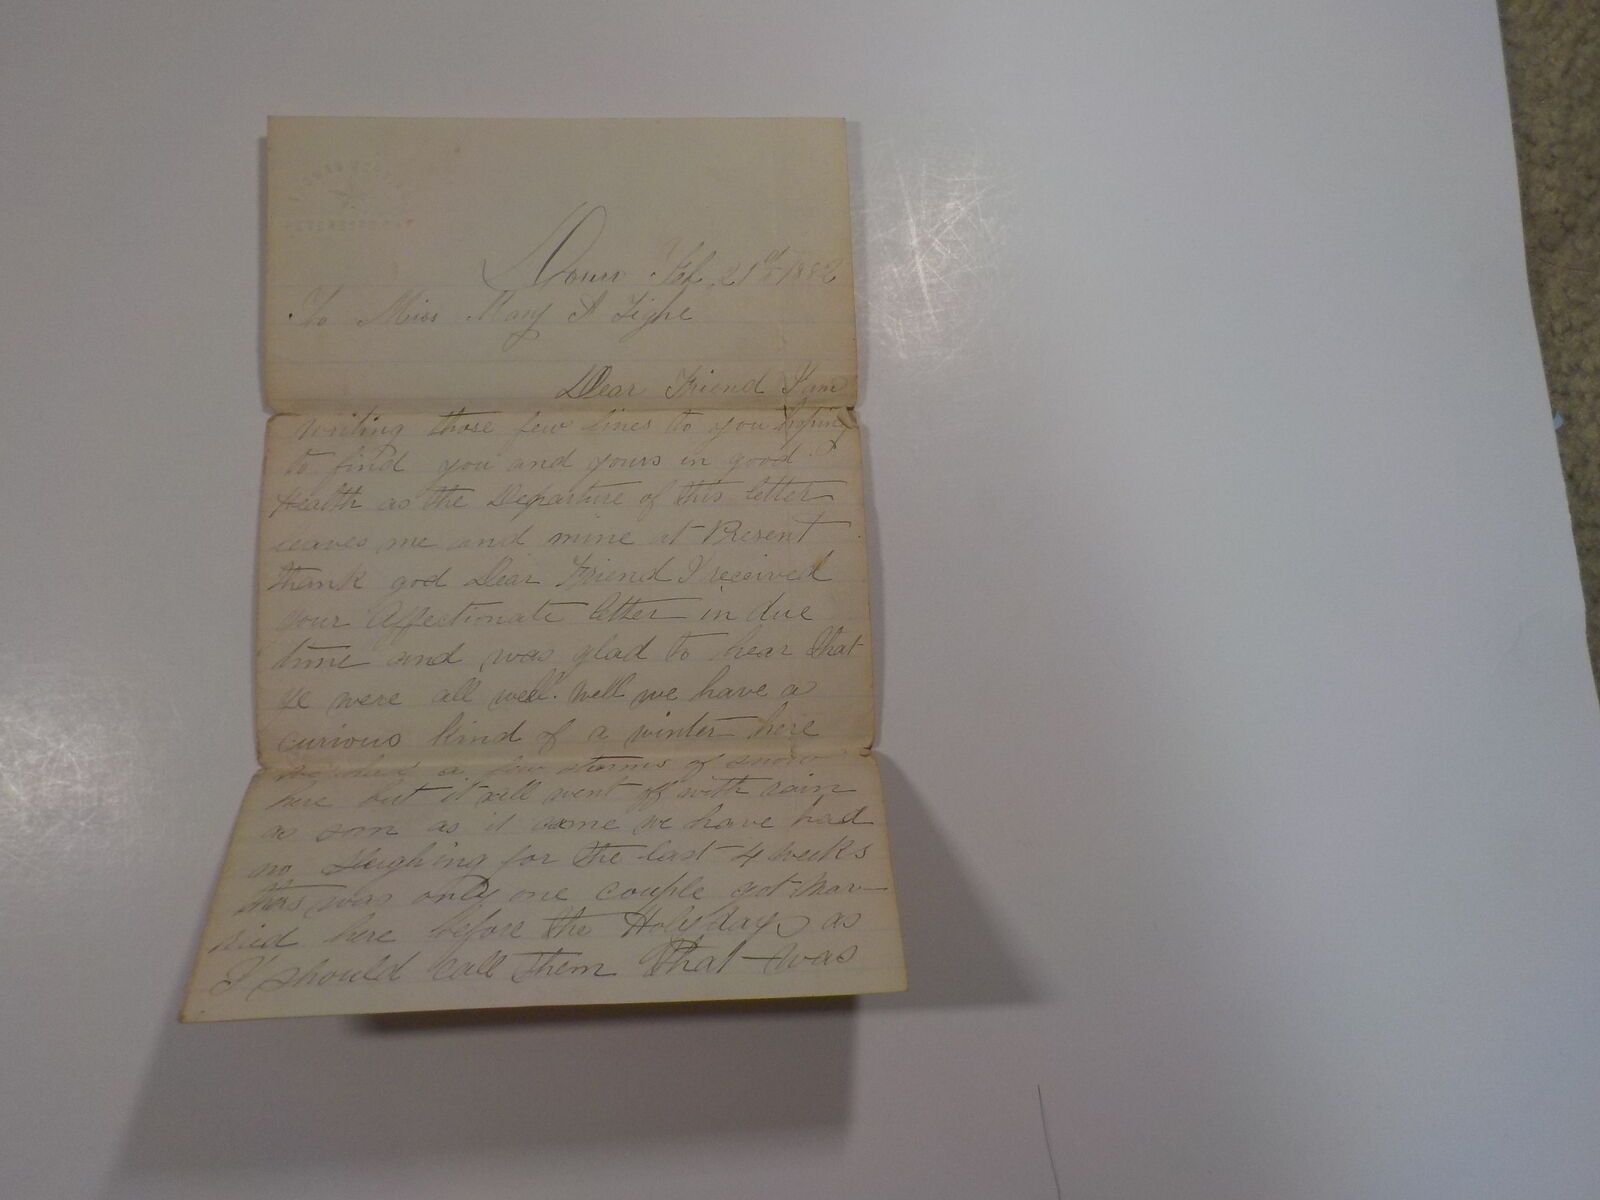 Dover Feb. 21st 1882
To Miss Mary A Tighe
Dear Friend I am
writing those few lines to you hoping
to find you and yours in good
Health as the Departure of this letter
leaves me and mine at Present
thank god Dear Friend I received
your Affectionate letter in due
time and was glad to hear that
ye were all well. Well we have a
curious kind of a winter here
we had a few storms of snow
here but it all went off with rain
as soon as it came we have had
no Sleighing for the last 4 weeks
this was only one couple got mar-
ried here before the Holydays as
I should call them that was